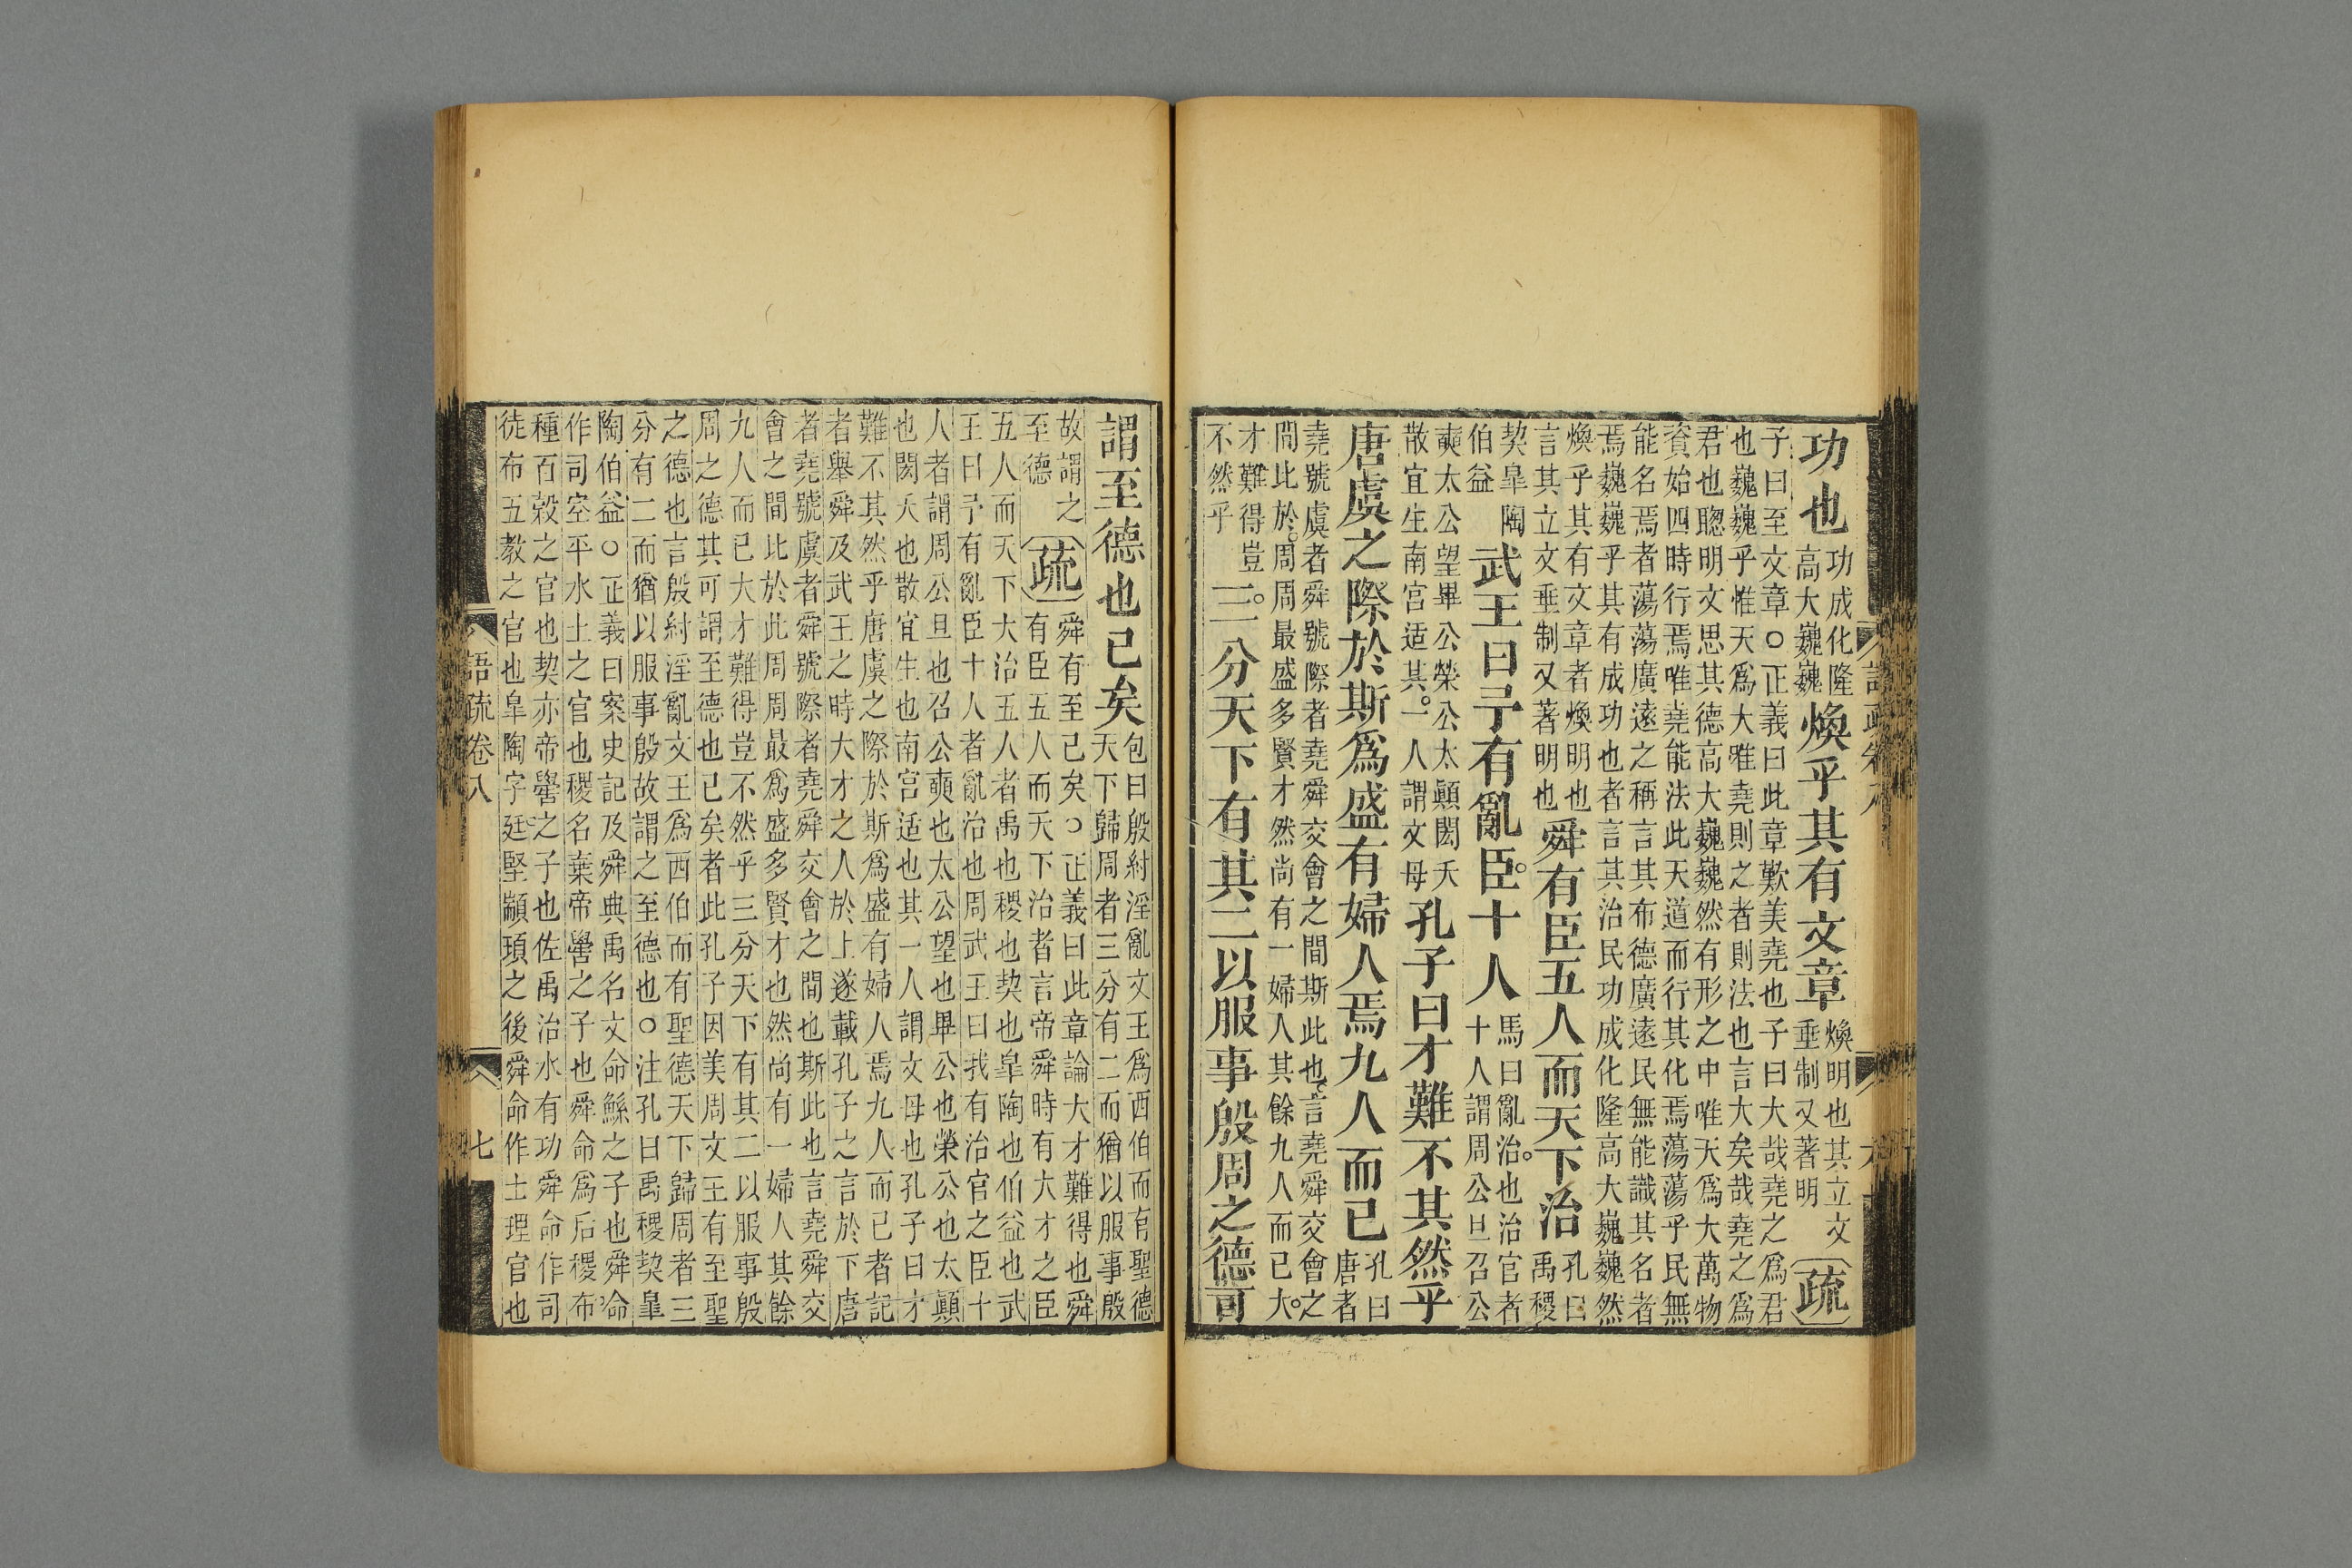 功也功成化隆高大巍巍煥乎其有文章煥明也其立文垂制又著明疏
子曰至文章○正義曰此章歎美堯也子曰大哉堯之爲君
也巍巍乎惟天爲大唯堯則之者則法也言大矣哉堯之爲
君也聰明文思其德高大巍巍然有形之中唯天爲大萬物
資始四時行焉唯堯能法此天道而行其化焉蕩蕩乎民無
能名焉者蕩蕩廣遠之稱言其布德廣遠民無能識其名者
焉巍巍乎其有成功也者言其治民功成化隆高大巍巍然
煥乎其有文章者煥明也言其立文垂制又著明也舜有臣五人而天下治孔曰禹稷
契皐陶伯益武王曰予有亂臣十人馬曰亂治也治官者十人謂周公旦召公
奭太公望畢公榮公太顚閎夭散宜生南宮适其一人謂文母孔子曰才難不其然乎
唐虞之際於斯爲盛有婦人焉九人而已孔曰唐者
堯號虞者舜號際者堯舜交會之間斯此也言堯舜交會之
間比於周周最盛多賢才然尚有一婦人其餘九人而已大
才難得豈不然乎三分天下有其二以服事殷周之德可
謂至德也已矣包曰殷紂淫亂文王爲西伯而有聖德天下歸周者三分有二而猶以服事殷
故謂之至德疏舜有至已矣○正義曰此章論大才難得也舜有臣五人而天下治者言帝舜時有大才之臣
五人而天下大治五人者禹也稷也契也皐陶也伯益也武
王曰予有亂臣十人者亂治也周武王曰我有治官之臣十
人者謂周公旦也召公奭也太公望也畢公也榮公也太顚
也閎夭也散宜生也南宮适也其一人謂文母也孔子曰才
難不其然乎唐虞之際於斯爲盛有婦人焉九人而已者記
者舉舜及武王之時大才之人於上遂載孔子之言於下唐
者堯號虞者舜號際者堯舜交會之間也斯此也言堯舜交
會之間比於此周周最爲盛多賢才也然尚有一婦人其餘
九人而已大才難得豈不然乎三分天下有其二以服事殷
周之德其可謂至德也已矣者此孔子因美周文王有至聖
之德也言殷紂淫亂文王爲西伯而有聖德天下歸周者三
分有二而猶以服事殷故謂之至德也○注孔曰禹稷契皐
陶伯益○正義曰案史記及舜典禹名文命鯀之子也舜命
作司空平水土之官也稷名棄帝嚳之子也舜命爲后稷布
種百穀之官也契亦帝嚳之子也佐禹治水有功舜命作司
徒布五教之官也皐陶字廷堅顓頊之後舜命作士理官也
語疏卷八
七